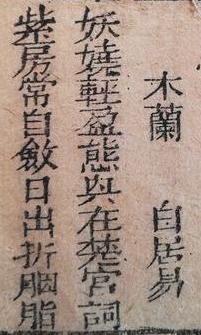 木蘭 白居易
妖嬈輕盈態與在楚宮詞
紫房常自斂日出折胭脂